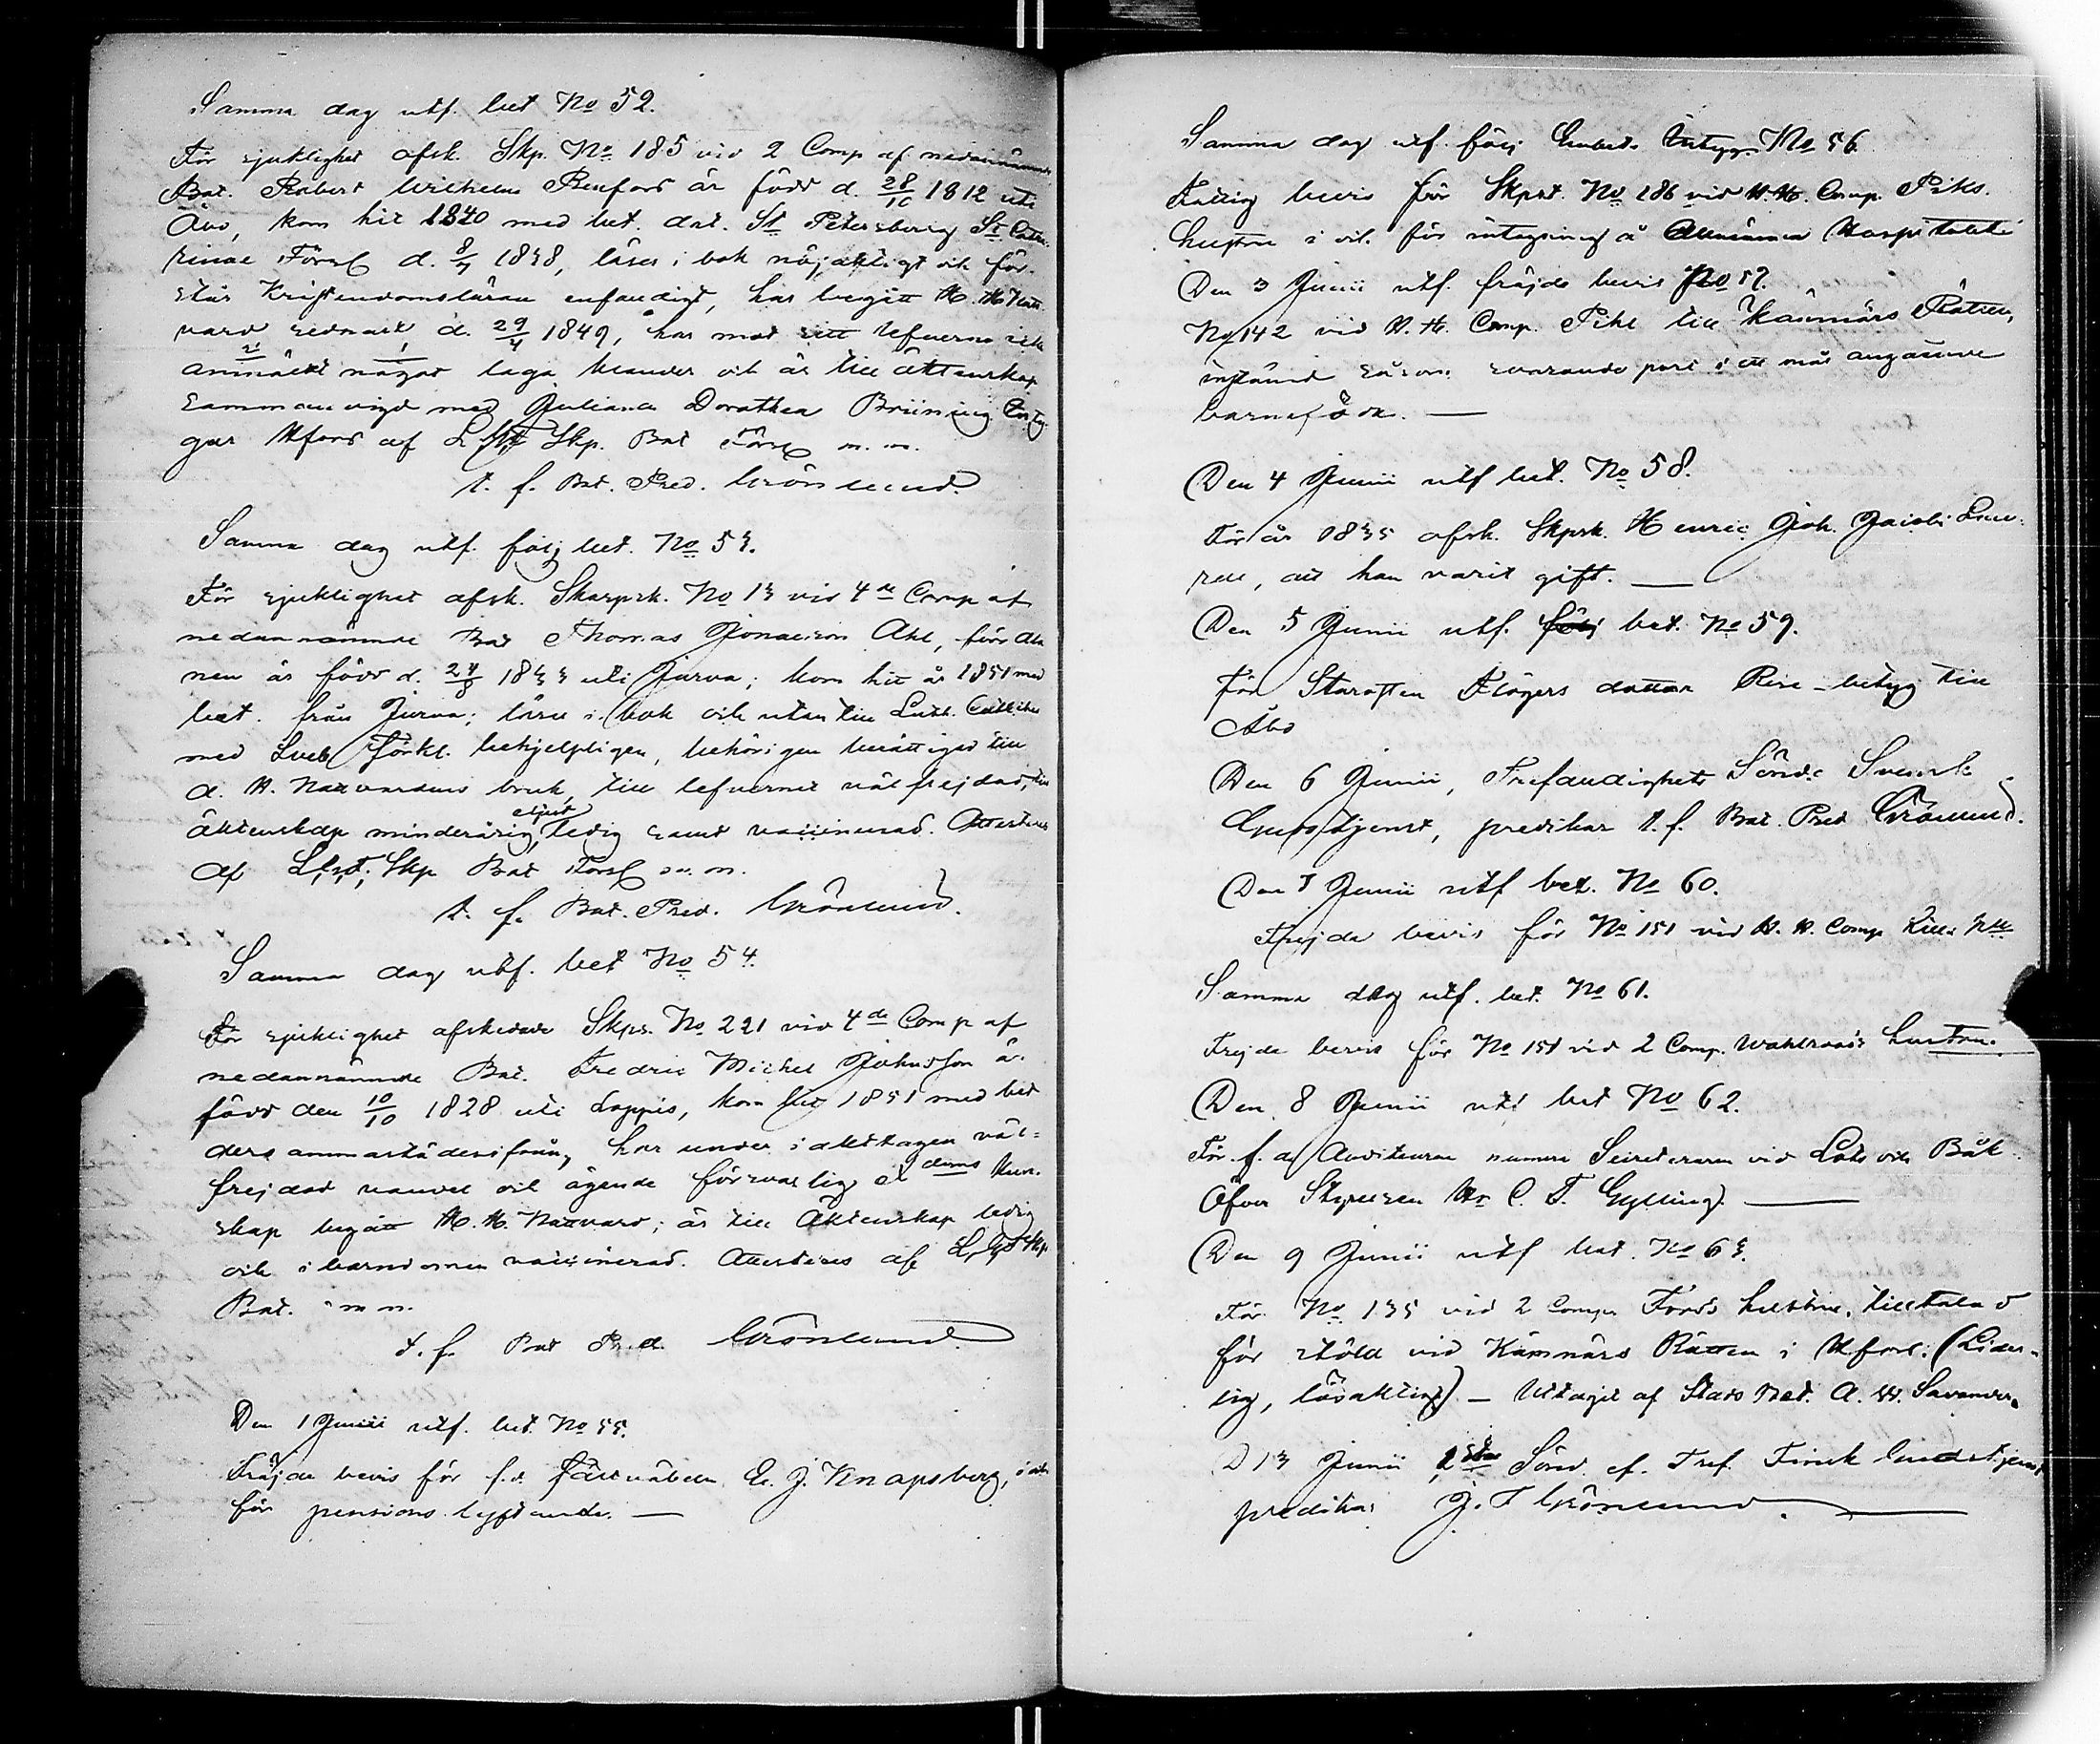 Samma dag utf. bet No 52.
För sjuklighet afsk. Skp. No 185 vid 2 Comp af nedannämnde
Bat. Robert Wilhelm Renfors är född d. 28/10 1812 uti
Åbo, kom hit 1840 med bet. dat. St Petersburg St Catha-
rinae Förs. d. 8/7 1838, läser i bok nöjaktigt och för-
står Kristendomsläran enfaldigt, har begått H. H. Natt
vard sednast d. 29/4 1849, har mot sitt lefverne icke
anmäldt något laga klander och är till äktenskap
sammanvigd med Juliana Dorothea Brüning.
gar Hfors af L. Fst Skp. Bat Förs m. m.
t. f. Bat. Pred. Grönlund.
Samma dag utf. följ bet. No 53.
För sjuklighet afsk. Skarpsk. No 13 vid 4de Comp af
nedannämnde Bat Thomas Jonasson Ahl, förr
nen är född d. 24/8 1833 uti Jurva; kom hit år 1851 med
bet. från Jurva; läser i bok och utan till Luth. Cateches
med Sveb. Förkl. behjelpligen, behörigen berättigad till
d. H. Nattvardens bruk, till lefvernet väl frejdad, till
äktenskap minderårig, ledig samt vaccinerad. Attesteras
af L. Fst. Skp Bat Förs m. m.
t. f. Bat. Pred. Grönlund.
Samma dag utf. bet No 54.
För sjuklighet afskedade Skps. No 221 vid 4de Comp af
nedannämnde Bat. Fredric Michel Johnsson är
född den 10/10 1828 uti Loppis, kom hit 1851 med bet
ders ammastädesifrån, har under iakttagen väl-
frejdad vandel och ägande försvarlig Kun-
skap begått H. H. Nattvard; är till Äktenskap ledig
och i barndomen vaccinerad. Attesteras af L. Fst Skp
Bat. m m.
t. f. Bat Pred. Grönlund.
Den 1 Junii utf. bet. No 55.
Fräjde bevis för f.d. Fältväbeln E. J. Knapsberg,
för pensions lyftande. —
Samma dag utf. följ Embets Betyg. No 56.
Fattig bevis för Skpst. No 186 vid H. H. Comp. Piks.
hustru för intagning å Allmänna Hospitalet
Den 3 Junii utf. fräjde bevis No 57.
No 142 vid H. H. Comp. Pihl till Kämnärs Rätten,
instämd såsom svarande part i ett mål angående
barnaföda. —
Den 4 Junii utf bet. No 58.
För år 1835 afsk. Skpsk. Henric Joh. Jacob
att han varit gift. —
Den 5 Junii utf. följ bet. No 59.
För Starosten Flögers dotter Rese-betyg till
Åbo
Den 6 Junii, Trefaldighets Sönd. Svensk
Gudstjenst, predikar t. f. Bat. Pred Grönlund.
Den 7 Junii utf bet. No 60.
Frejde bevis för No 151 vid H. H. Comp
Samma dag utf. bet. No 61.
Frejde bevis för No 151 vid 2 Comp. Wahlroos's hustru.
Den 8 Junii utf bet No 62.
För f. d. Auditeuren numera Secreteraren vid Lots och Båk
Öfver Styrelsen Hr C. F. Gylling. —
Den 9 Junii utf bet. No 63.
För No 135 vid 2 Comp. Fords hustru, tilltalad
för stöld vid Kämnärs Rätten i Hfors: (Lider-
lig, lösaktig) — Uttaget af Stads A. W. Savander.
D 13 Junii 1sta Sönd. ef. Tref. Finsk Gudstjenst
predikar J. F Grönlund. —